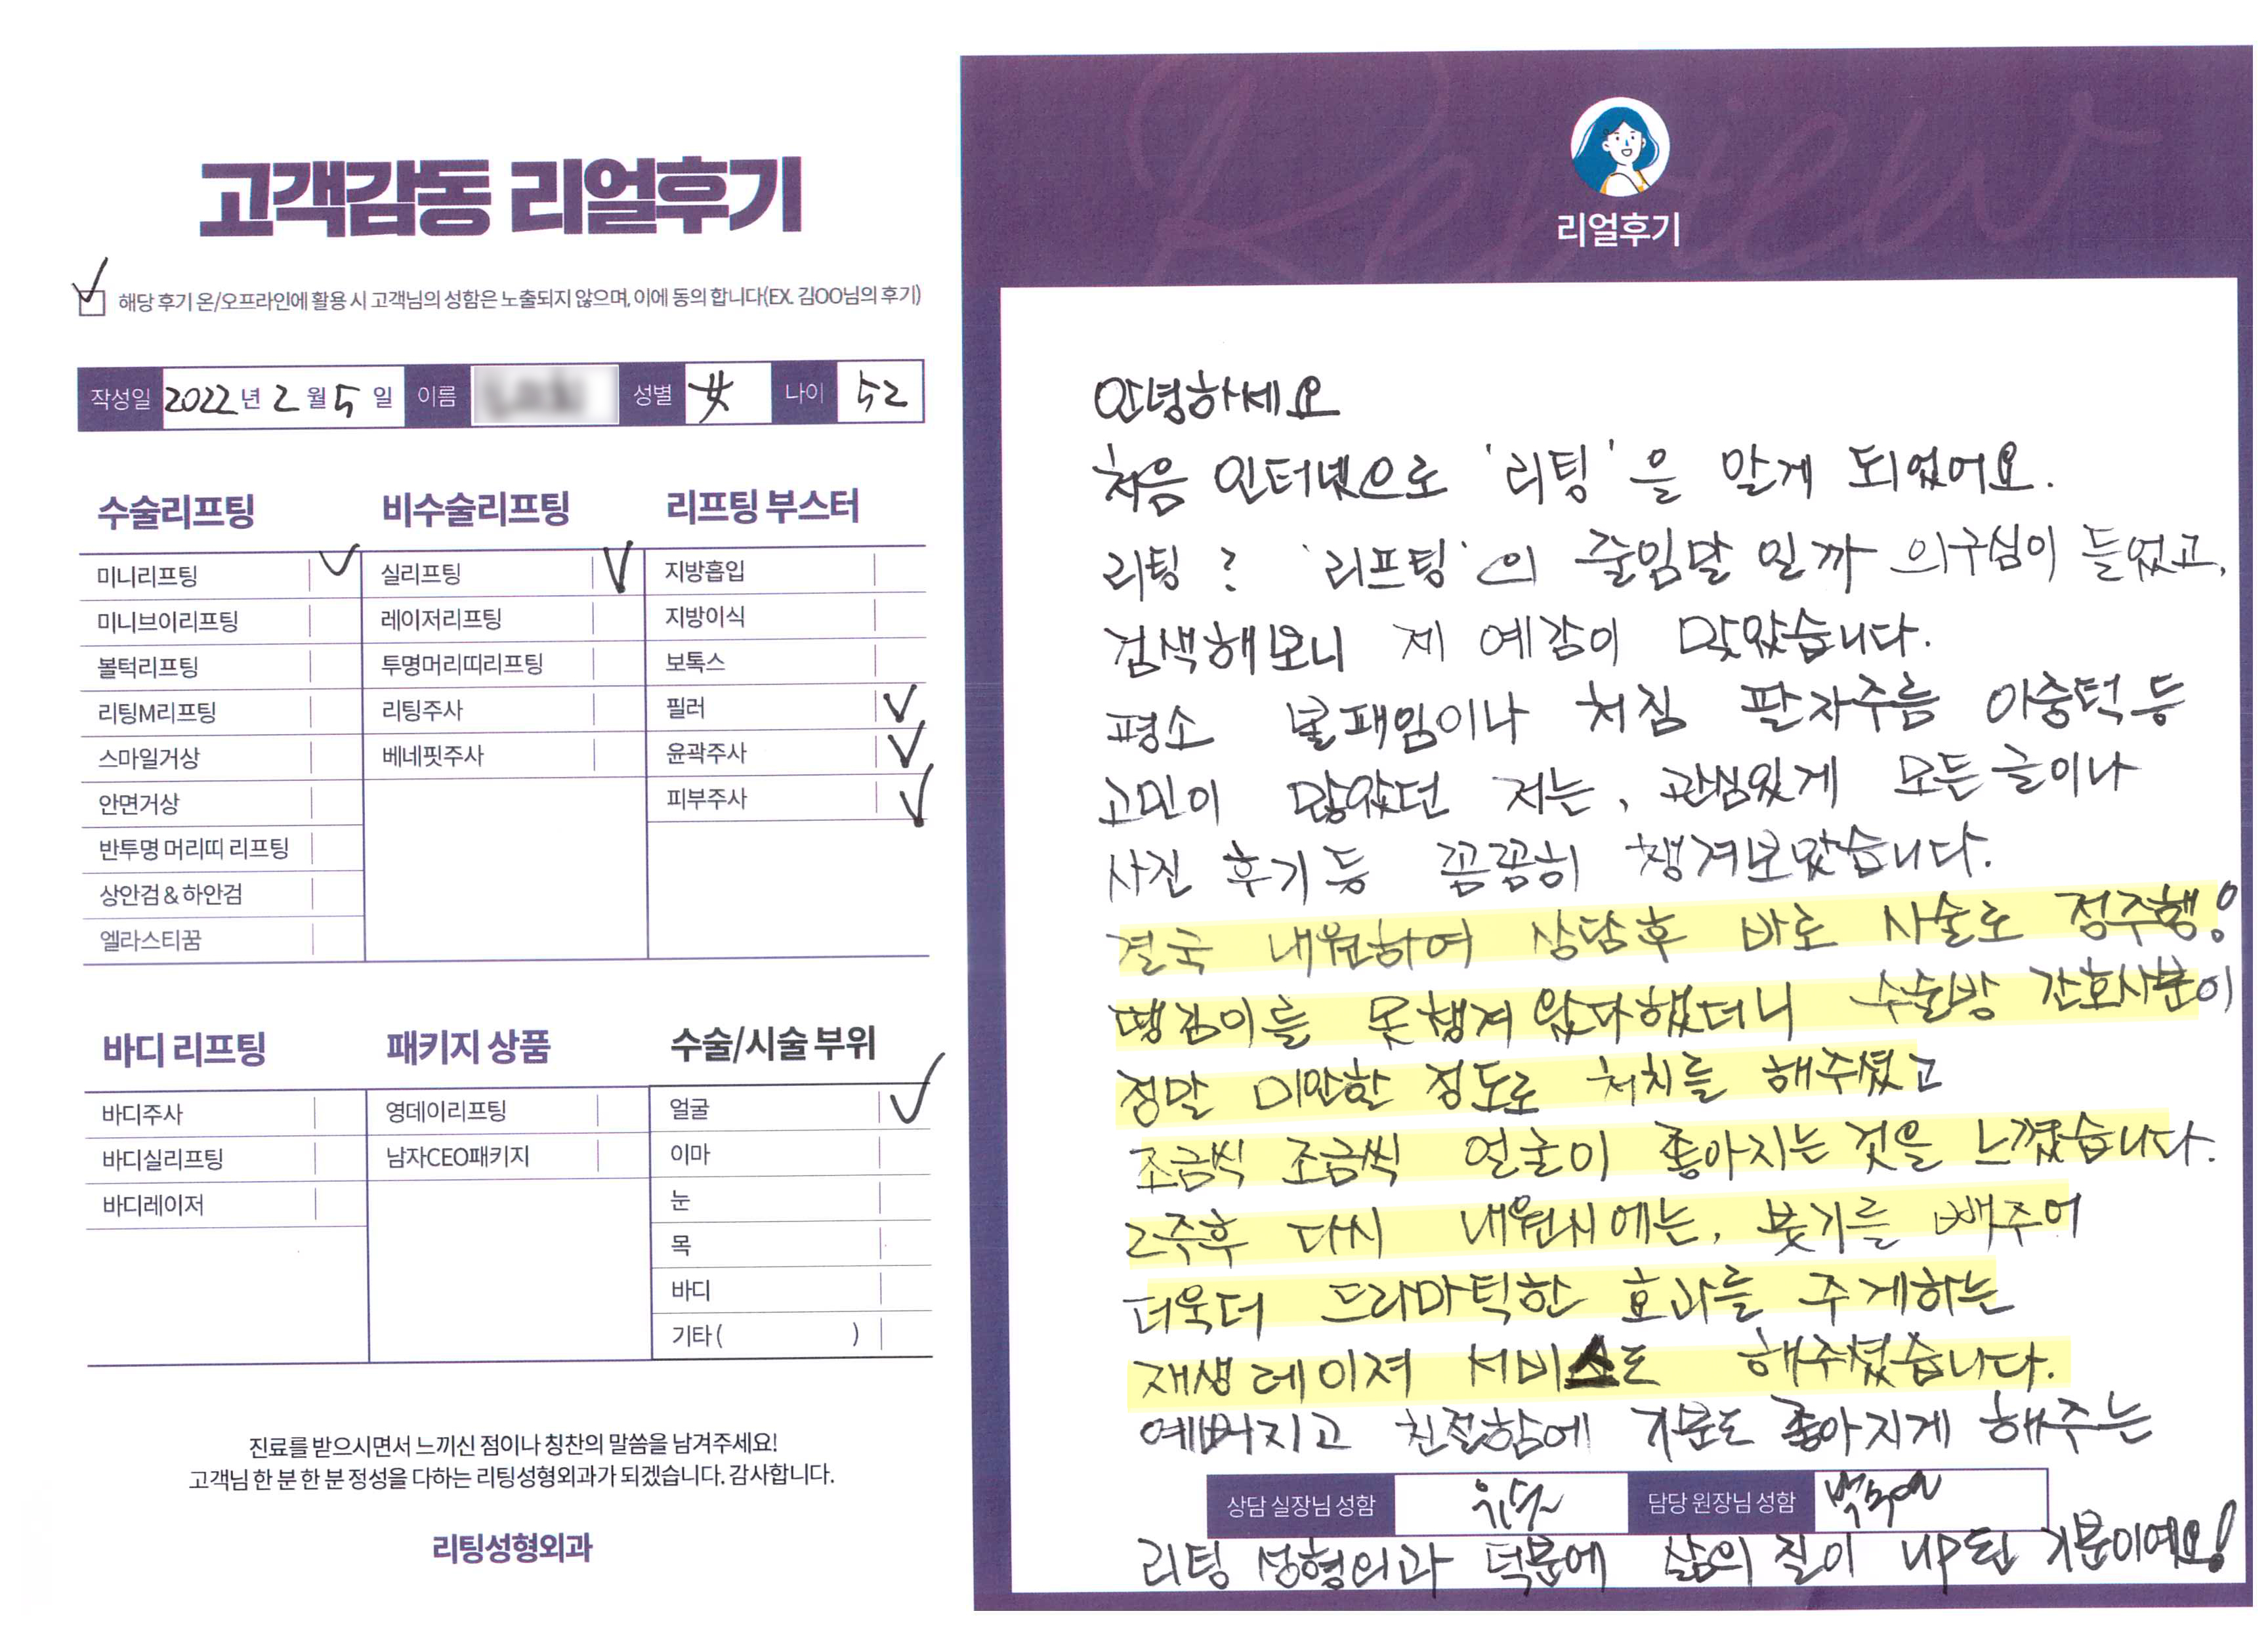 고객감동 리얼후기
✓ 해당 후기 온/오프라인에 활용 시 고객님의 성함은 노출되지 않으며, 이에 동의 합니다(EX. 김OO님의 후기)
작성일 2022년 2월 5일 이름 성별 女 나이 52
수술리프팅
미니리프팅 ✓
미니브이리프팅
볼턱리프팅
리팅M리프팅
스마일거상
안면거상
반투명 머리띠 리프팅
상안검 & 하안검
엘라스티꿈
비수술리프팅
실리프팅 ✓
레이저리프팅
투명머리띠리프팅
리팅주사
베네핏주사
리프팅 부스터
지방흡입
지방이식
보톡스
필러 ✓
윤곽주사 ✓
피부주사 ✓
바디 리프팅
바디주사
바디실리프팅
바디레이저
패키지 상품
영데이리프팅
남자CEO패키지
수술/시술 부위
얼굴 ✓
이마
눈
목
바디
기타 ( )
진료를 받으시면서 느끼신 점이나 칭찬의 말씀을 남겨주세요!
고객님 한 분 한 분 정성을 다하는 리팅성형외과가 되겠습니다. 감사합니다.
리팅성형외과
Review
리얼후기
안녕하세요
처음 인터넷으로 '리팅'을 알게 되었어요.
리팅? '리프팅'의 줄임말 일까 의구심이 들었고,
검색해보니 제 예감이 맞았습니다.
평소 볼패임이나 처짐 팔자주름 이중턱 등
고민이 많았던 저는, 관심있게 모든 글이나
사진 후기 등 꼼꼼히 챙겨보았습니다.
결국 내원하여 상담후 바로 시술로 정주행!
땡김이를 못챙겨 왔다했더니 수술방 간호사분이
정말 미안할 정도로 처치를 해주셨고
조금씩 조금씩 얼굴이 좋아지는 것을 느꼈습니다.
2주후 다시 내원시에는, 붓기를 빼주어
더욱더 드라마틱한 효과를 주게하는
재생레이져 서비스도 해주셨습니다.
예뻐지고 친절함에 기분도 좋아지게 해주는
상담 실장님 성함 담당 원장님 성함
리팅 성형외과 덕분에 삶의 질이 UP된 기분이예요!